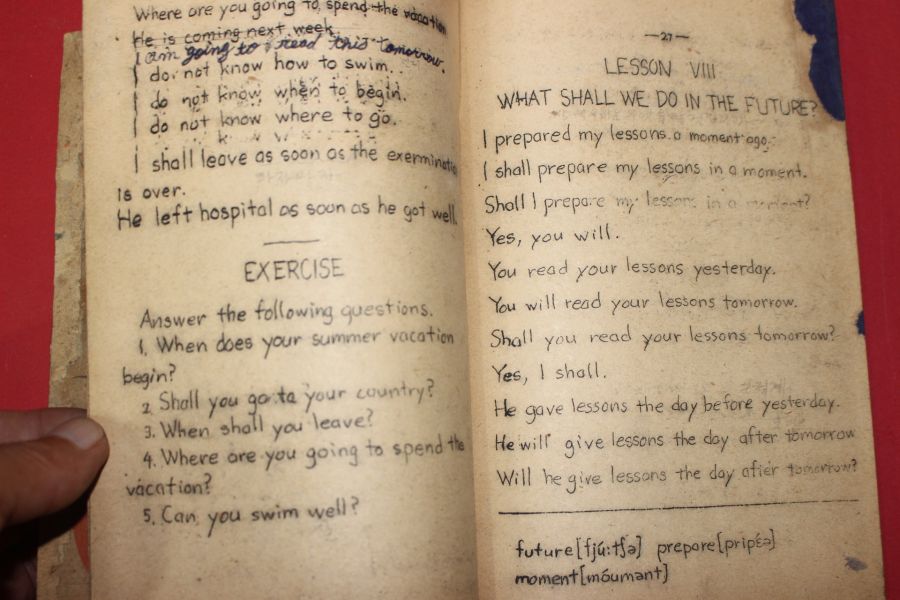 Where are you going to spend the vacation
He is coming next week.
I am going to read this tomorrow.
I do not know how to swim.
I do not know when to begin.
I do not know where to go.
I shall leave as soon as the exermination
is over.
He left hospital as soon as he got well.
EXERCISE
Answer the following questions.
1. When does your summer vacation
begin?
2. Shall you go to your country?
3. When shall you leave?
4. Where are you going to spend the
vacation?
5. Can you swim well?
—27—
LESSON VIII
WHAT SHALL WE DO IN THE FUTURE?
I prepared my lessons a moment ago.
I shall prepare my lessons in a moment.
Shall I prepare my lessons in a moment?
Yes, you will.
You read your lessons yesterday.
You will read your lessons tomorrow.
Shall you read your lessons tomorrow?
Yes, I shall.
He gave lessons the day before yesterday.
He will give lessons the day after tomorrow
Will he give lessons the day after tomorrow?
future[fjú:tʃə] prepare[pripɛ́ə]
moment[móumənt]